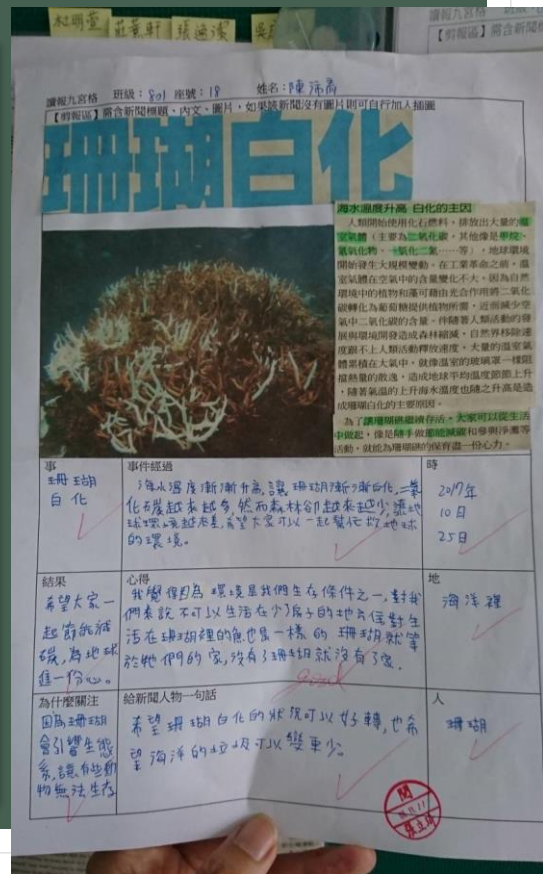 林明萱 莊蕙軒
讀報九宮格 班級：801 座號：18 姓名：陳
【剪報區】需含新聞標題、內文、圖片，如果該新聞沒有圖片則可自行加入插圖
【剪報區】需含新聞
珊瑚白化
海水溫度升高 白化的主因
人類開始使用化石燃料，排放出大量的溫
室氣體（主要為二氧化碳，其他像是甲烷、
氮氧化物、一氧化二氮……等），地球環境
開始發生大規模變動。在工業革命之前，溫
室氣體在空氣中的含量變化不大，因為自然
環境中的植物和藻可藉由光合作用將二氧化
碳轉化為葡萄糖提供植物所需，近而減少空
氣中二氧化碳的含量。伴隨著人類活動的發
展與環境開發造成森林縮減，自然界移除速
度跟不上人類活動釋放速度，大量的溫室氣
體累積在大氣中，就像溫室的玻璃罩一樣阻
擋熱量的散逸，造成地球平均溫度節節上升
，隨著氣溫的上升海水溫度也隨之升高是造
成珊瑚白化的主要原因。
為了讓珊瑚礁繼續存活，大家可以從生活
中做起，像是隨手做節能減碳和參與淨灘等
活動，就能為珊瑚礁的保育盡一份心力。
事
珊瑚
白化
事件經過
海水溫度漸漸升高，讓珊瑚漸漸白化，二氧
化碳越來越多，然而森林卻越來越少，讓地
球環境越來越差，希望大家可以一起幫忙地球
的環境。
時
2017年
10日
25日
結果
希望大家一
起節能減
碳，為地球
進一份心。
心得
我覺得因為環境是我們生存條件之一，對我
們來說不可以生活在少了房子的地方住對生
活在珊瑚裡的魚也是一樣的 珊瑚就等
於牠們的家，沒有了珊瑚就沒有了家。
good
地
海洋裡
為什麼關注
因為珊瑚
會引響生態
系，讓有些動
物無法生存
給新聞人物一句話
希望珊瑚白化的狀況可以好轉，也希
望海洋的垃圾可以變更少。
人
珊瑚
閱